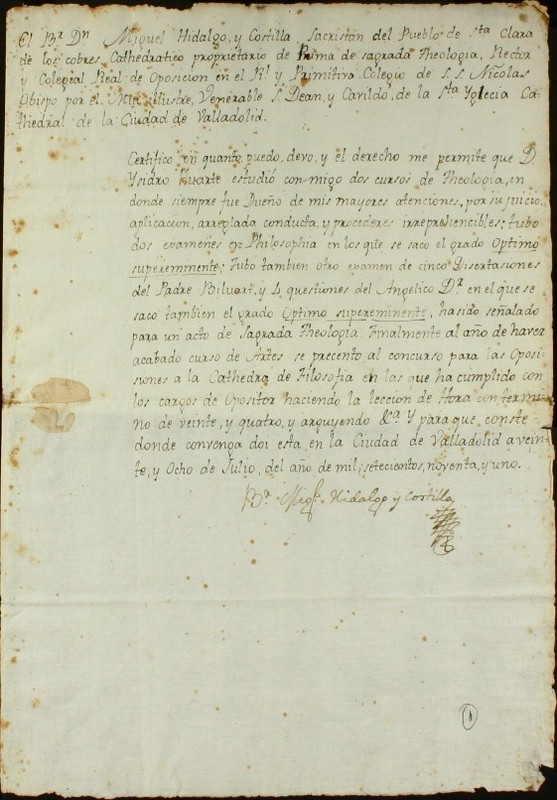 El Br. Dn Miguel Hidalgo, y Costilla Sacristán del Pueblo de Sta Clara
de los cobres, Cathedratico proprietario de Prima de sagrada Theologia, Rector
y Colegial Real de Oposicion en el Rl y Primitivo Colegio de S. S. Nicolas
Obispo por el Mui Ilustre, Venerable S. Dean, y Cavildo, de la Sta Yglecia Ca-
thedral de la Ciudad de Valladolid.
Certifico en quanto puedo, devo, y el derecho me permite que D.
Ysidro Huarte estudió con migo dos cursos de Theologia, en
donde siempre fue Dueño de mis mayores atenciones, por su juicio,
aplicacion, arreglada conducta, y procederes irreprehencibles; tubo
dos examenes en Philosophia in los que se saco el grado Optimo
supereminente; Tubo tambien otro examen de cinco Disertasiones
del Padre Biluart, y 4 questiones del Angelico Dr. en el que se
saco tambien el grado Optimo supereminente, ha sido señalado
para un acto de Sagrada Theologia Finalmente al año de haver
acabado curso de Artes se precento al concurso para las Oposi-
siones a la Cathedra de Filosofia en las que ha cumplido con
los cargos de Opositor haciendo la leccion de Hora con termi-
no de veinte, y quatro, y arguyendo &a Y para que conste
donde convenga doi esta en la Ciudad de Valladolid a vein-
te, y Ocho de Julio, del año de mil, setecientos, noventa, y uno.
Br. Migl. Hidalgo y Costilla
1